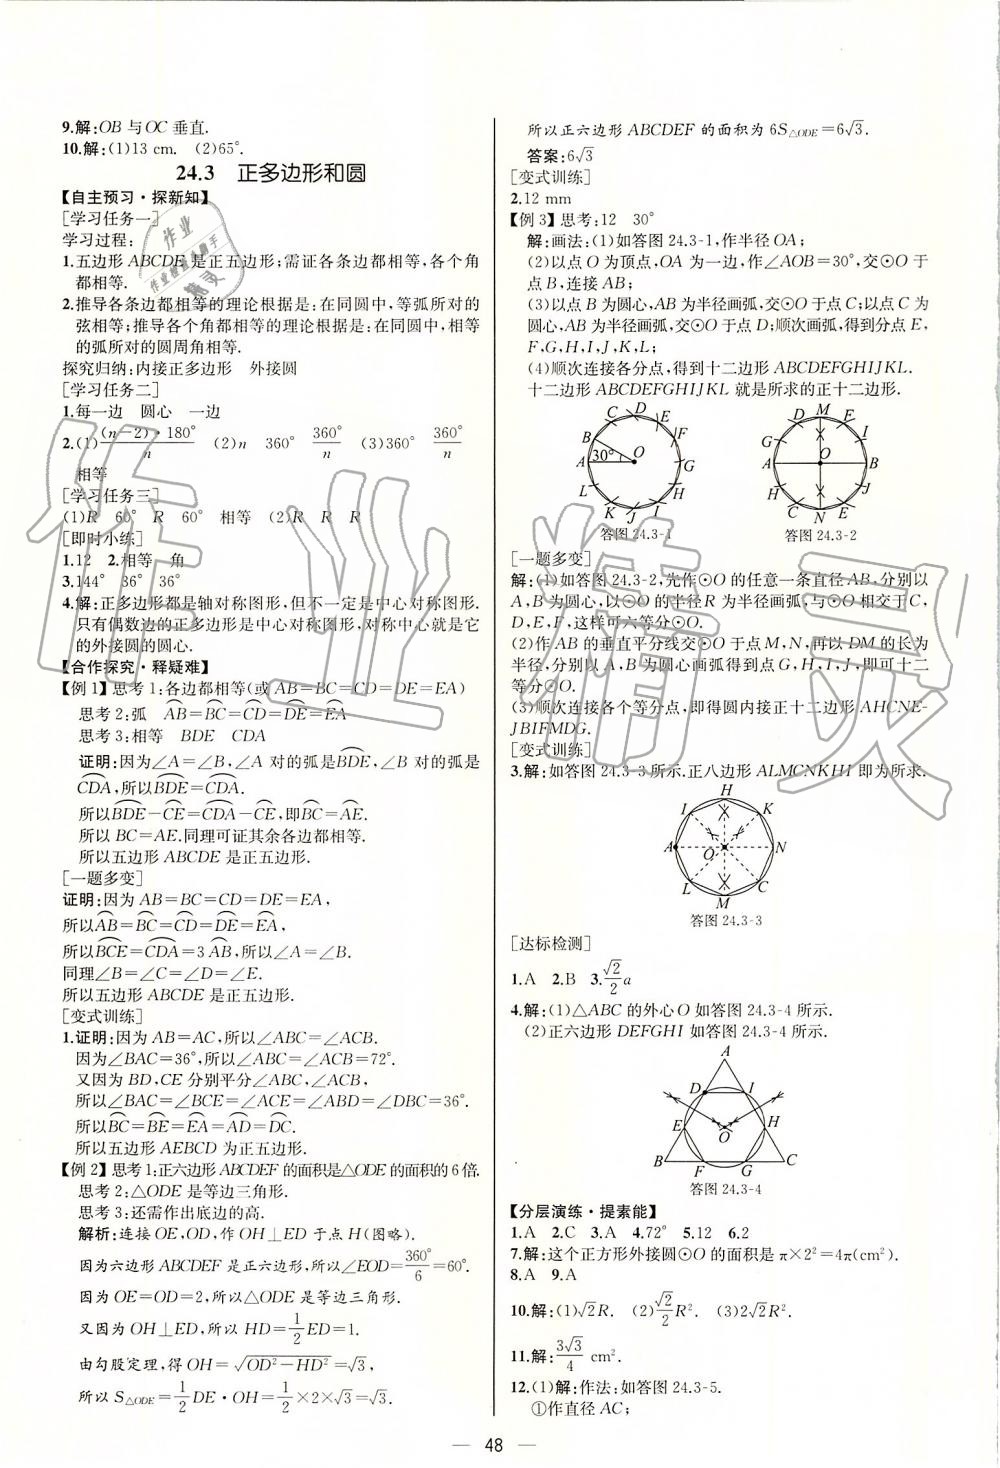 9.解:OB 与OC 垂直.
10.解:(1)13 cm. (2)65°.
24.3 正多边形和圆
【自主预习·探新知】
[学习任务一]
学习过程:
1.五边形 ABCDE 是正五边形;需证各条边都相等,各个角
都相等.
2.推导各条边都相等的理论根据是:在同圆中,等弧所对的
弦相等;推导各个角都相等的理论根据是:在同圆中,相等
的弧所对的圆周角相等.
探究归纳:内接正多边形 外接圆
[学习任务二]
1.每一边 圆心 一边
2.(1)(n−2)·180°/n (2)n 360° 360°/n (3)360° 360°/n
相等
[学习任务三]
(1)R 60° R 60° 相等 (2)R R R
[即时小练]
1.12 2.相等 角
3.144° 36° 36°
4.解:正多边形都是轴对称图形,但不一定是中心对称图形.
只有偶数边的正多边形是中心对称图形,对称中心就是它
的外接圆的圆心.
【合作探究·释疑难】
【例 1】思考 1:各边都相等(或 AB=BC=CD=DE=EA)
思考 2:弧 AB⌒=BC⌒=CD⌒=DE⌒=EA⌒
思考 3:相等 BDE CDA
证明:因为∠A=∠B,∠A 对的弧是BDE⌒,∠B 对的弧是
CDA⌒,所以BDE⌒=CDA⌒.
所以BDE⌒−CE⌒=CDA⌒−CE⌒,即BC⌒=AE⌒.
所以 BC=AE.同理可证其余各边都相等.
所以五边形 ABCDE 是正五边形.
[一题多变]
证明:因为 AB=BC=CD=DE=EA,
所以AB⌒=BC⌒=CD⌒=DE⌒=EA⌒,
所以BCE⌒=CDA⌒=3AB⌒,所以∠A=∠B.
同理∠B=∠C=∠D=∠E.
所以五边形 ABCDE 是正五边形.
[变式训练]
1.证明:因为 AB=AC,所以∠ABC=∠ACB.
因为∠BAC=36°,所以∠ABC=∠ACB=72°.
又因为 BD,CE 分别平分∠ABC,∠ACB,
所以∠BAC=∠BCE=∠ACE=∠ABD=∠DBC=36°.
所以BC⌒=BE⌒=EA⌒=AD⌒=DC⌒.
所以五边形 AEBCD 为正五边形.
【例 2】思考 1:正六边形 ABCDEF 的面积是△ODE 的面积的 6 倍.
思考 2:△ODE 是等边三角形.
思考 3:还需作出底边的高.
解析:连接 OE,OD,作 OH⊥ED 于点 H(图略).
因为六边形 ABCDEF 是正六边形,所以∠EOD=360°/6=60°.
因为 OE=OD=2,所以△ODE 是等边三角形.
又因为 OH⊥ED,所以 HD=1/2ED=1.
由勾股定理,得 OH=√(OD²−HD²)=√3,
所以 S△ODE=1/2DE·OH=1/2×2×√3=√3.
所以正六边形 ABCDEF 的面积为 6S△ODE=6√3.
答案:6√3
[变式训练]
2.12 mm
【例 3】思考:12 30°
解:画法:(1)如答图 24.3-1,作半径 OA;
(2)以点 O 为顶点,OA 为一边,作∠AOB=30°,交⊙O 于
点 B,连接 AB;
(3)以点 B 为圆心,AB 为半径画弧,交⊙O 于点 C;以点 C 为
圆心,AB 为半径画弧,交⊙O 于点 D;顺次画弧,得到分点 E,
F,G,H,I,J,K,L;
(4)顺次连接各分点,得到十二边形 ABCDEFGHIJKL.
十二边形 ABCDEFGHIJKL 就是所求的正十二边形.
C D E
B F
A 30° O G
L H
K J I
答图 24.3-1
D M E
G I
A O B
H J
C N E
答图 24.3-2
[一题多变]
解:(1)如答图 24.3-2,先作⊙O 的任意一条直径 AB,分别以
A,B 为圆心,以⊙O 的半径 R 为半径画弧,与⊙O 相交于 C,
D,E,F,这样可六等分⊙O.
(2)作 AB 的垂直平分线交⊙O 于点 M,N,再以 DM 的长为
半径,分别以 A,B 为圆心画弧得到点 G,H,I,J,即可十二
等分⊙O.
(3)顺次连接各个等分点,即得圆内接正十二边形 AHCNE-
JBIFMDG.
[变式训练]
3.解:如答图 24.3-3所示.正八边形 ALMCNKHI 即为所求.
H
I K
A O N
L C
M
答图 24.3-3
[达标检测]
1.A 2.B 3.√2/2 a
4.解:(1)△ABC 的外心 O 如答图 24.3-4 所示.
(2)正六边形 DEFGHI 如答图 24.3-4 所示.
A
D I
E O H
B F G C
答图 24.3-4
【分层演练·提素能】
1.A 2.C 3.A 4.72° 5.12 6.2
7.解:这个正方形外接圆⊙O 的面积是 π×2²=4π(cm²).
8.A 9.A
10.解:(1)√2R. (2)√2/2 R². (3)2√2R².
11.解:3√3/4 cm².
12.(1)解:作法:如答图 24.3-5.
①作直径 AC;
— 48 —
作业精灵